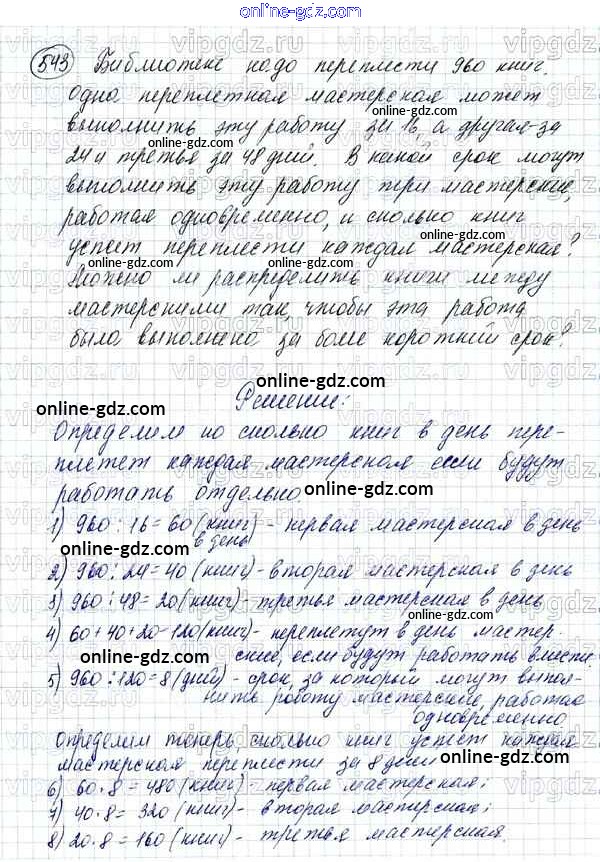 543 Библиотеке надо переплести 960 книг.
Одна переплетная мастерская может
выполнить эту работу за 16, а другая за
24 и третья за 48 дней. В какой срок могут
выполнить эту работу три мастерские,
работая одновременно, и сколько книг
успеет переплести каждая мастерская?
Можно ли распределить книги между
мастерскими так, чтобы эта работа
была выполнено за боле короткий срок?
Решение:
Определим по сколько книг в день пере-
плетет каждая мастерская если будут
работать отдельно.
1) 960 : 16 = 60 (книг) - первая мастерская в день
в день
2) 960 : 24 = 40 (книг) - вторая мастерская в день
3) 960 : 48 = 20 (книг) - третья мастерская в день
4) 60 + 40 + 20 = 120 (книг) - переплетут в день мастер.
ские, если будут работать вместе.
5) 960 : 120 = 8 (дней) - срок, за который могут выпол-
нить работу мастерские, работая
одновременно
Определим теперь, сколько книг успеет каждая
мастерская переплести за 8 дней
6) 60 · 8 = 480 (книг) - первая мастерская;
7) 40 · 8 = 320 (книг) - вторая мастерская;
8) 20 · 8 = 160 (книг) - третья мастерская.
online-gdz.com
vipgdz.ru